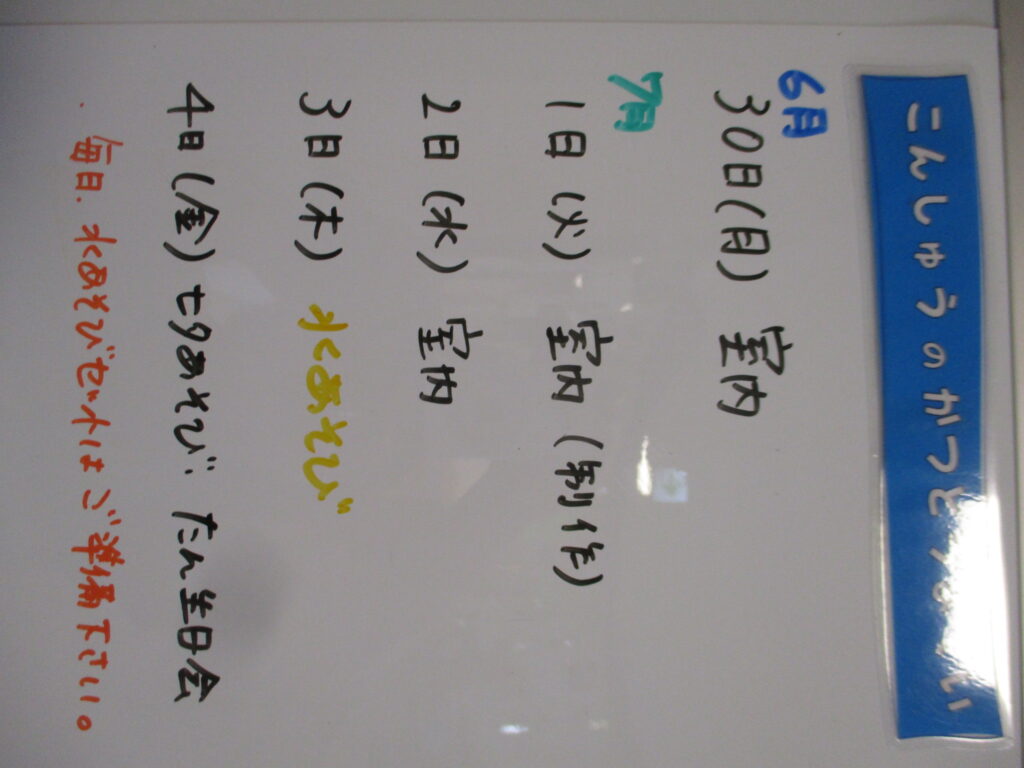 こんしゅうのかつどう
6月
30日(月) 室内
7月
1日(火) 室内(制作)
2日(水) 室内
3日(木) 水あそび
4日(金) 七夕あそび・たん生日会
・毎日、水あそびセットはご準備下さい。